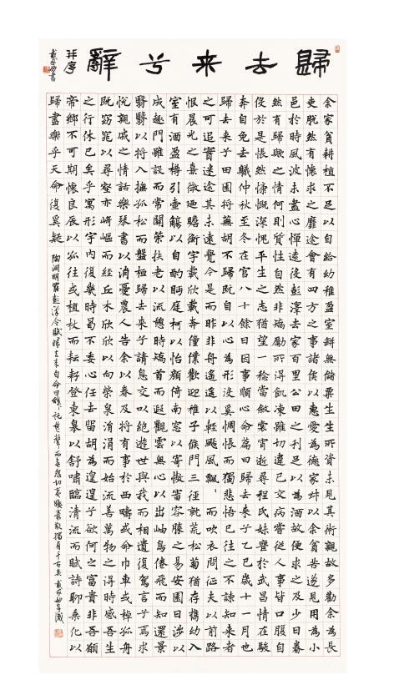 歸去来兮辭
并序
余家貧耕植不足以自給幼稚盈室缾無儲粟生生所資未見其術親故多勸余為長
吏脱然有懷求之靡途會有四方之事諸侯以惠愛為德家叔以余貧苦遂見用為小
邑於時風波未靜心憚遠役彭澤去家百里公田之利足以為酒故便求之及少日眷
然有歸歟之情何則質性自然非矯勵所得飢凍雖切違己交病嘗從人事皆口腹自
役於是悵然慷慨深愧平生之志猶望一稔當斂裳宵逝尋程氏妹喪于武昌情在駿
奔自免去職仲秋至冬在官八十餘日因事順心命篇曰歸去来兮乙巳歲十一月也
歸去来兮田園將蕪胡不歸既自以心為形役奚惆悵而獨悲悟已往之不諫知来者
之可追實迷途其未遠覺今是而昨非舟遙遙以輕颺風飄飄而吹衣問征夫以前路
恨晨光之熹微乃瞻衡宇載欣載奔僮僕歡迎稚子候門三徑就荒松菊猶存攜幼入
室有酒盈樽引壺觴以自酌眄庭柯以怡顏倚南窗以寄傲審容膝之易安園日涉以
成趣門雖設而常關策扶老以流憩時矯首而遐觀雲無心以出岫鳥倦飛而知還景
翳翳以將入撫孤松而盤桓歸去来兮請息交以絶遊世與我而相遺復駕言兮焉求
悅親戚之情話樂琴書以消憂農人告余以春及將有事於西疇或命巾車或棹孤舟
既窈窕以尋壑亦崎嶇而經丘木欣欣以向榮泉涓涓而始流善萬物之得時感吾生
之行休已矣乎寓形宇内復幾時曷不委心任去留胡為遑遑兮欲何之富貴非吾願
帝鄉不可期懷良辰以孤往或植杖而耘耔登東皋以舒嘯臨清流而賦詩聊乘化以
歸盡樂乎天命復奚疑 陶淵明